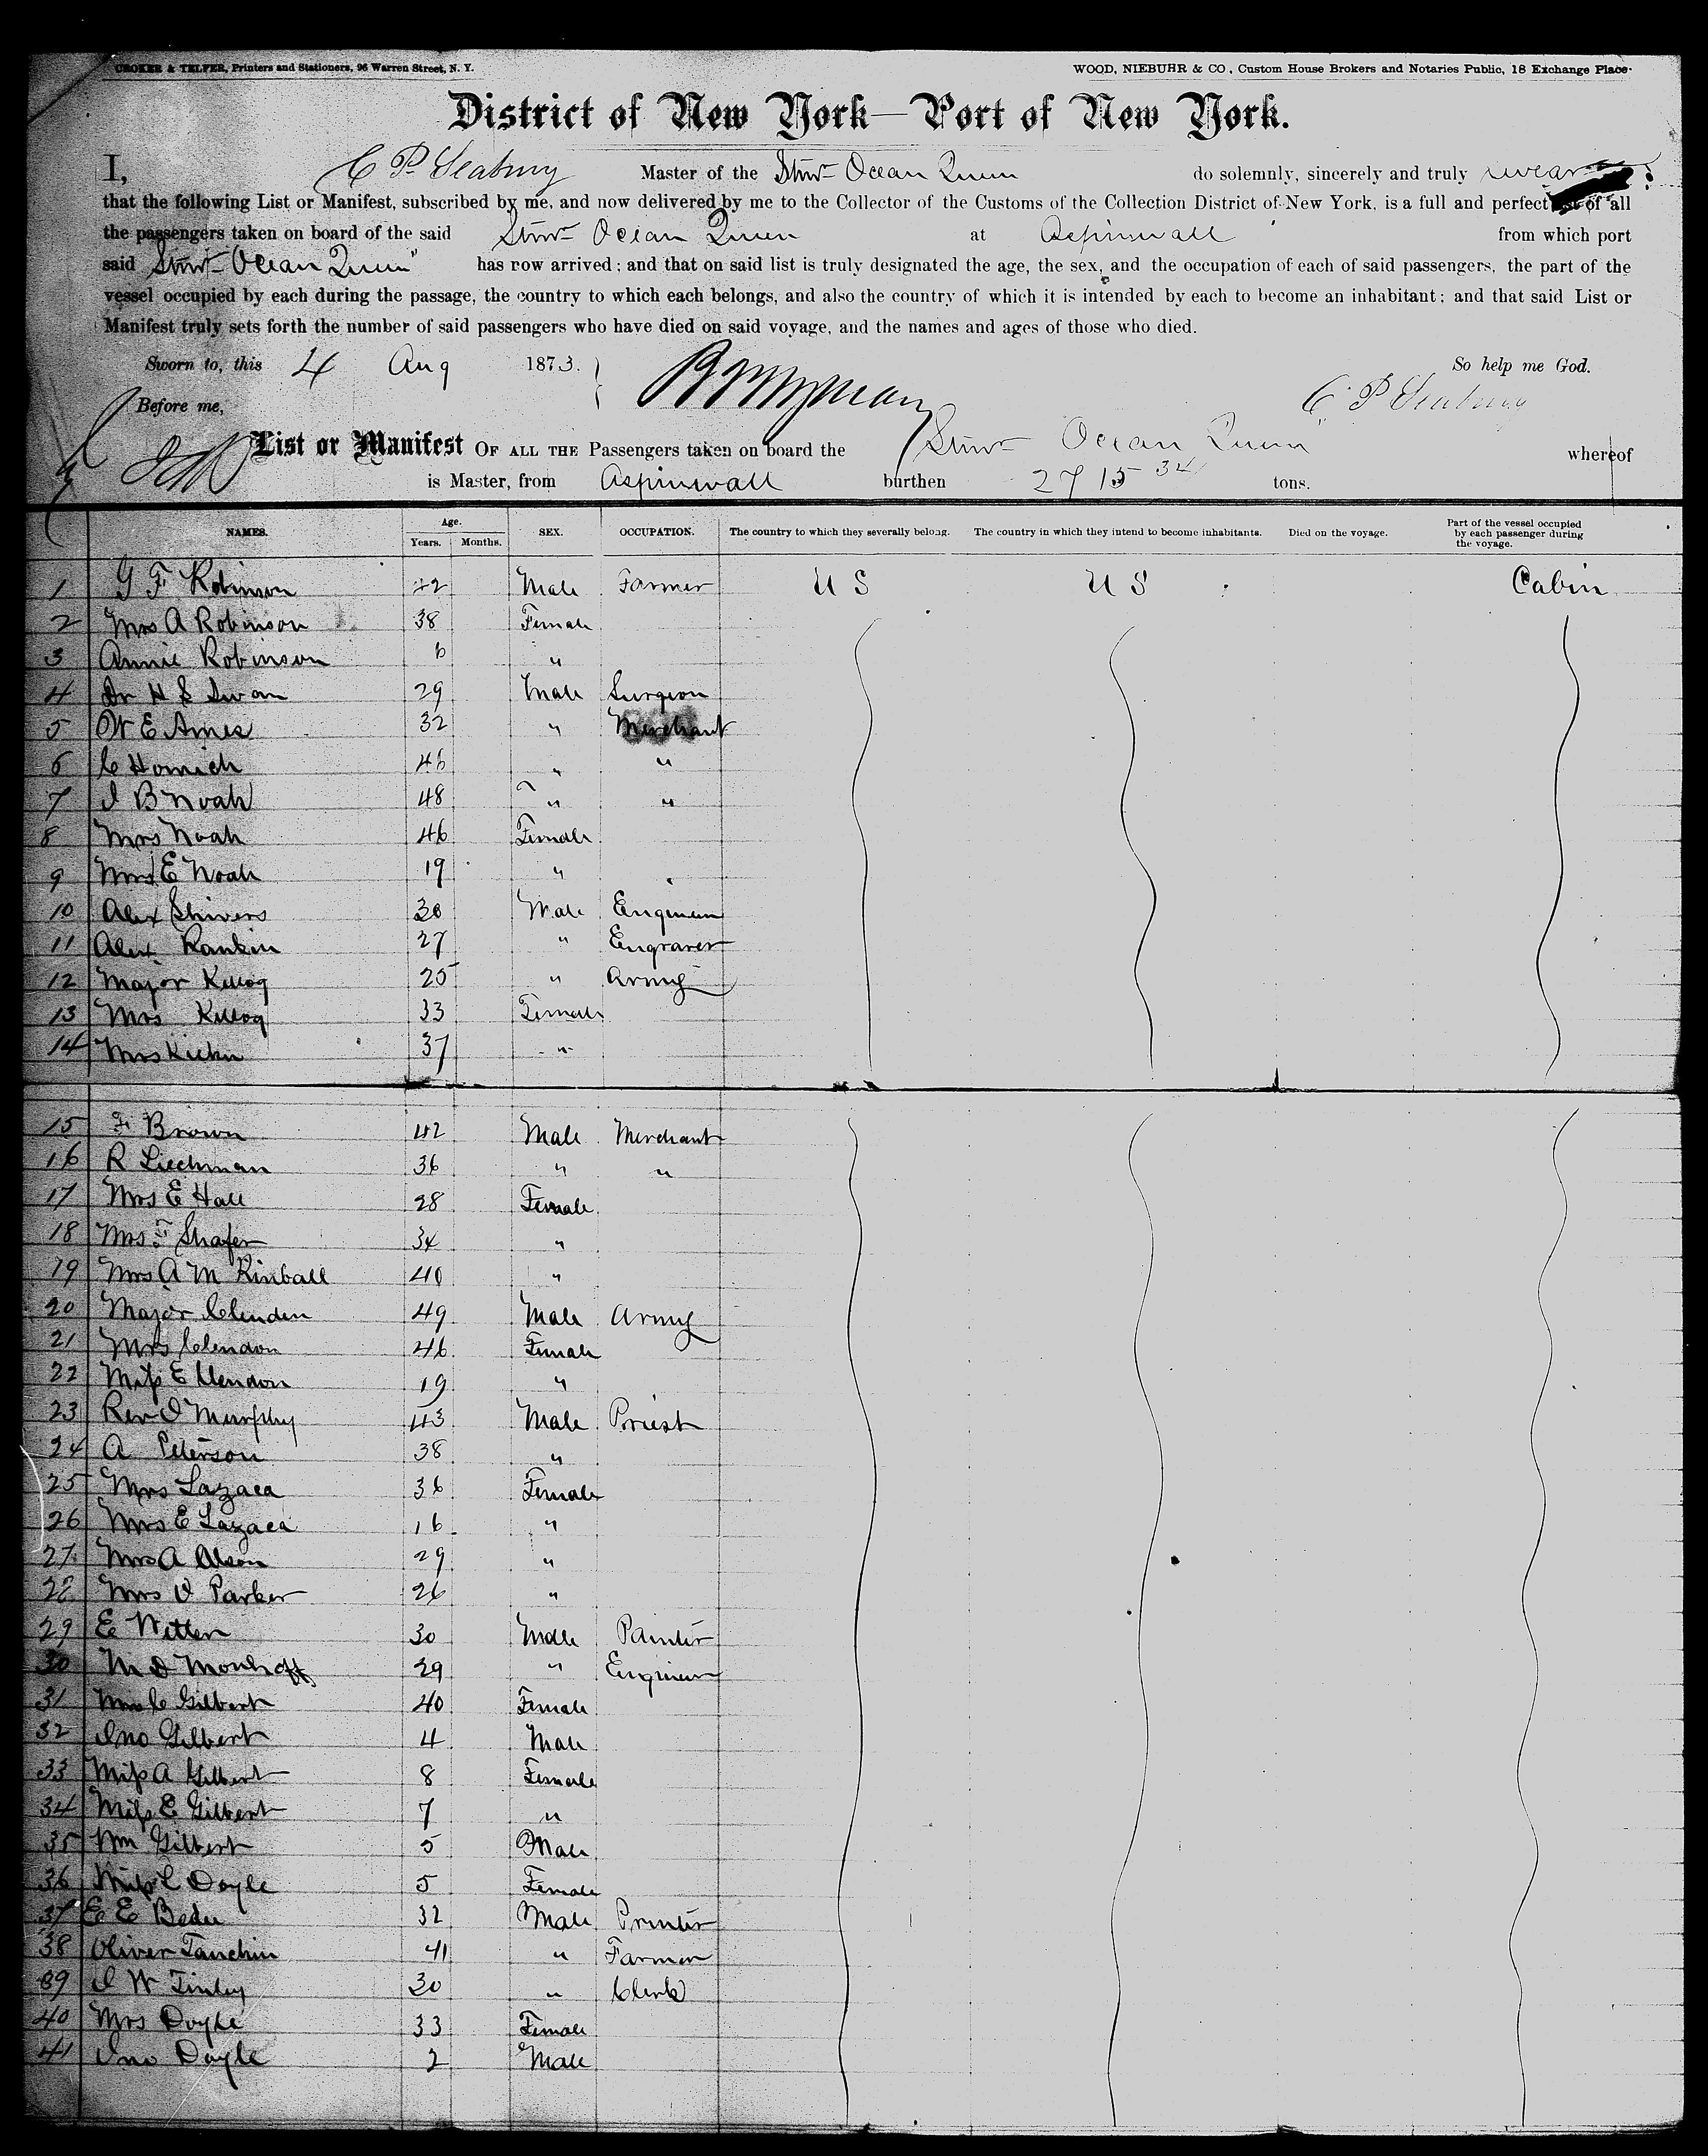 CROKER & TELFER, Printers and Stationers, 96 Warren Street, N. Y. WOOD, NIEBUHR & CO., Custom House Brokers and Notaries Public, 18 Exchange Place.
District of New York—Port of New York.
I, C P Seabury Master of the Stmr Ocean Queen do solemnly, sincerely and truly swear
that the following List or Manifest, subscribed by me, and now delivered by me to the Collector of the Customs of the Collection District of New York, is a full and perfect list of all
the passengers taken on board of the said Stmr Ocean Queen at Aspinwall from which port
said Stmr Ocean Queen" has now arrived; and that on said list is truly designated the age, the sex, and the occupation of each of said passengers, the part of the
vessel occupied by each during the passage, the country to which each belongs, and also the country of which it is intended by each to become an inhabitant; and that said List or
Manifest truly sets forth the number of said passengers who have died on said voyage, and the names and ages of those who died.
Sworn to, this 4 Aug 1873. So help me God.
Before me, C. P Seabury
List or Manifest OF ALL THE Passengers taken on board the Stmr Ocean Queen" whereof
is Master, from Aspinwall burthen 2715 34 tons.
NAMES. Age. Years. Months. SEX. OCCUPATION. The country to which they severally belong. The country in which they intend to become inhabitants. Died on the voyage. Part of the vessel occupied by each passenger during the voyage.
1 G F Robinson 42 Male Farmer U S U S Cabin
2 Mrs A Robinson 38 Female
3 Annie Robinson 6 "
4 Dr H S Swan 29 Male Surgeon
5 W E Ames 32 " Merchant
6 C Hornich 46 " "
7 I B Noah 48 " "
8 Mrs Noah 46 Female
9 Mrs E Noah 19 "
10 Alex Shivers 30 Male Engineer
11 Alex Rankin 27 " Engraver
12 Major Kellog 25 " Army
13 Mrs Kellog 33 Female
14 Mrs 37 "
15 F Brown 42 Male Merchant
16 R Liechman 36 " "
17 Mrs E Hall 28 Female
18 Mrs F Shafer 34 "
19 Mrs A M Kinball 40 "
20 Major Clenden 49 Male Army
21 Mrs Clendon 46 Female
22 Miss E Clendon 19 "
23 Rev D Murphy 43 Male Priest
24 A Peterson 38 "
25 Mrs Lazaea 36 Female
26 Mrs E Lazaea 16 "
27 Mrs A Olson 29 "
28 Mrs O Parker 26 "
29 E Witten 30 Male Painter
30 M D Monhoff 29 " Engineer
31 Mrs C Gilbert 40 Female
32 Jno Gilbert 4 Male
33 Miss A Gilbert 8 Female
34 Miss E Gilbert 7 "
35 Wm Gilbert 5 Male
36 Miss C Doyle 5 Female
37 E E Beder 32 Male Printer
38 Oliver Tanchin 41 " Farmer
39 I W Tinley 30 " Clerk
40 Mrs Doyle 33 Female
41 Jno Doyle 2 Male